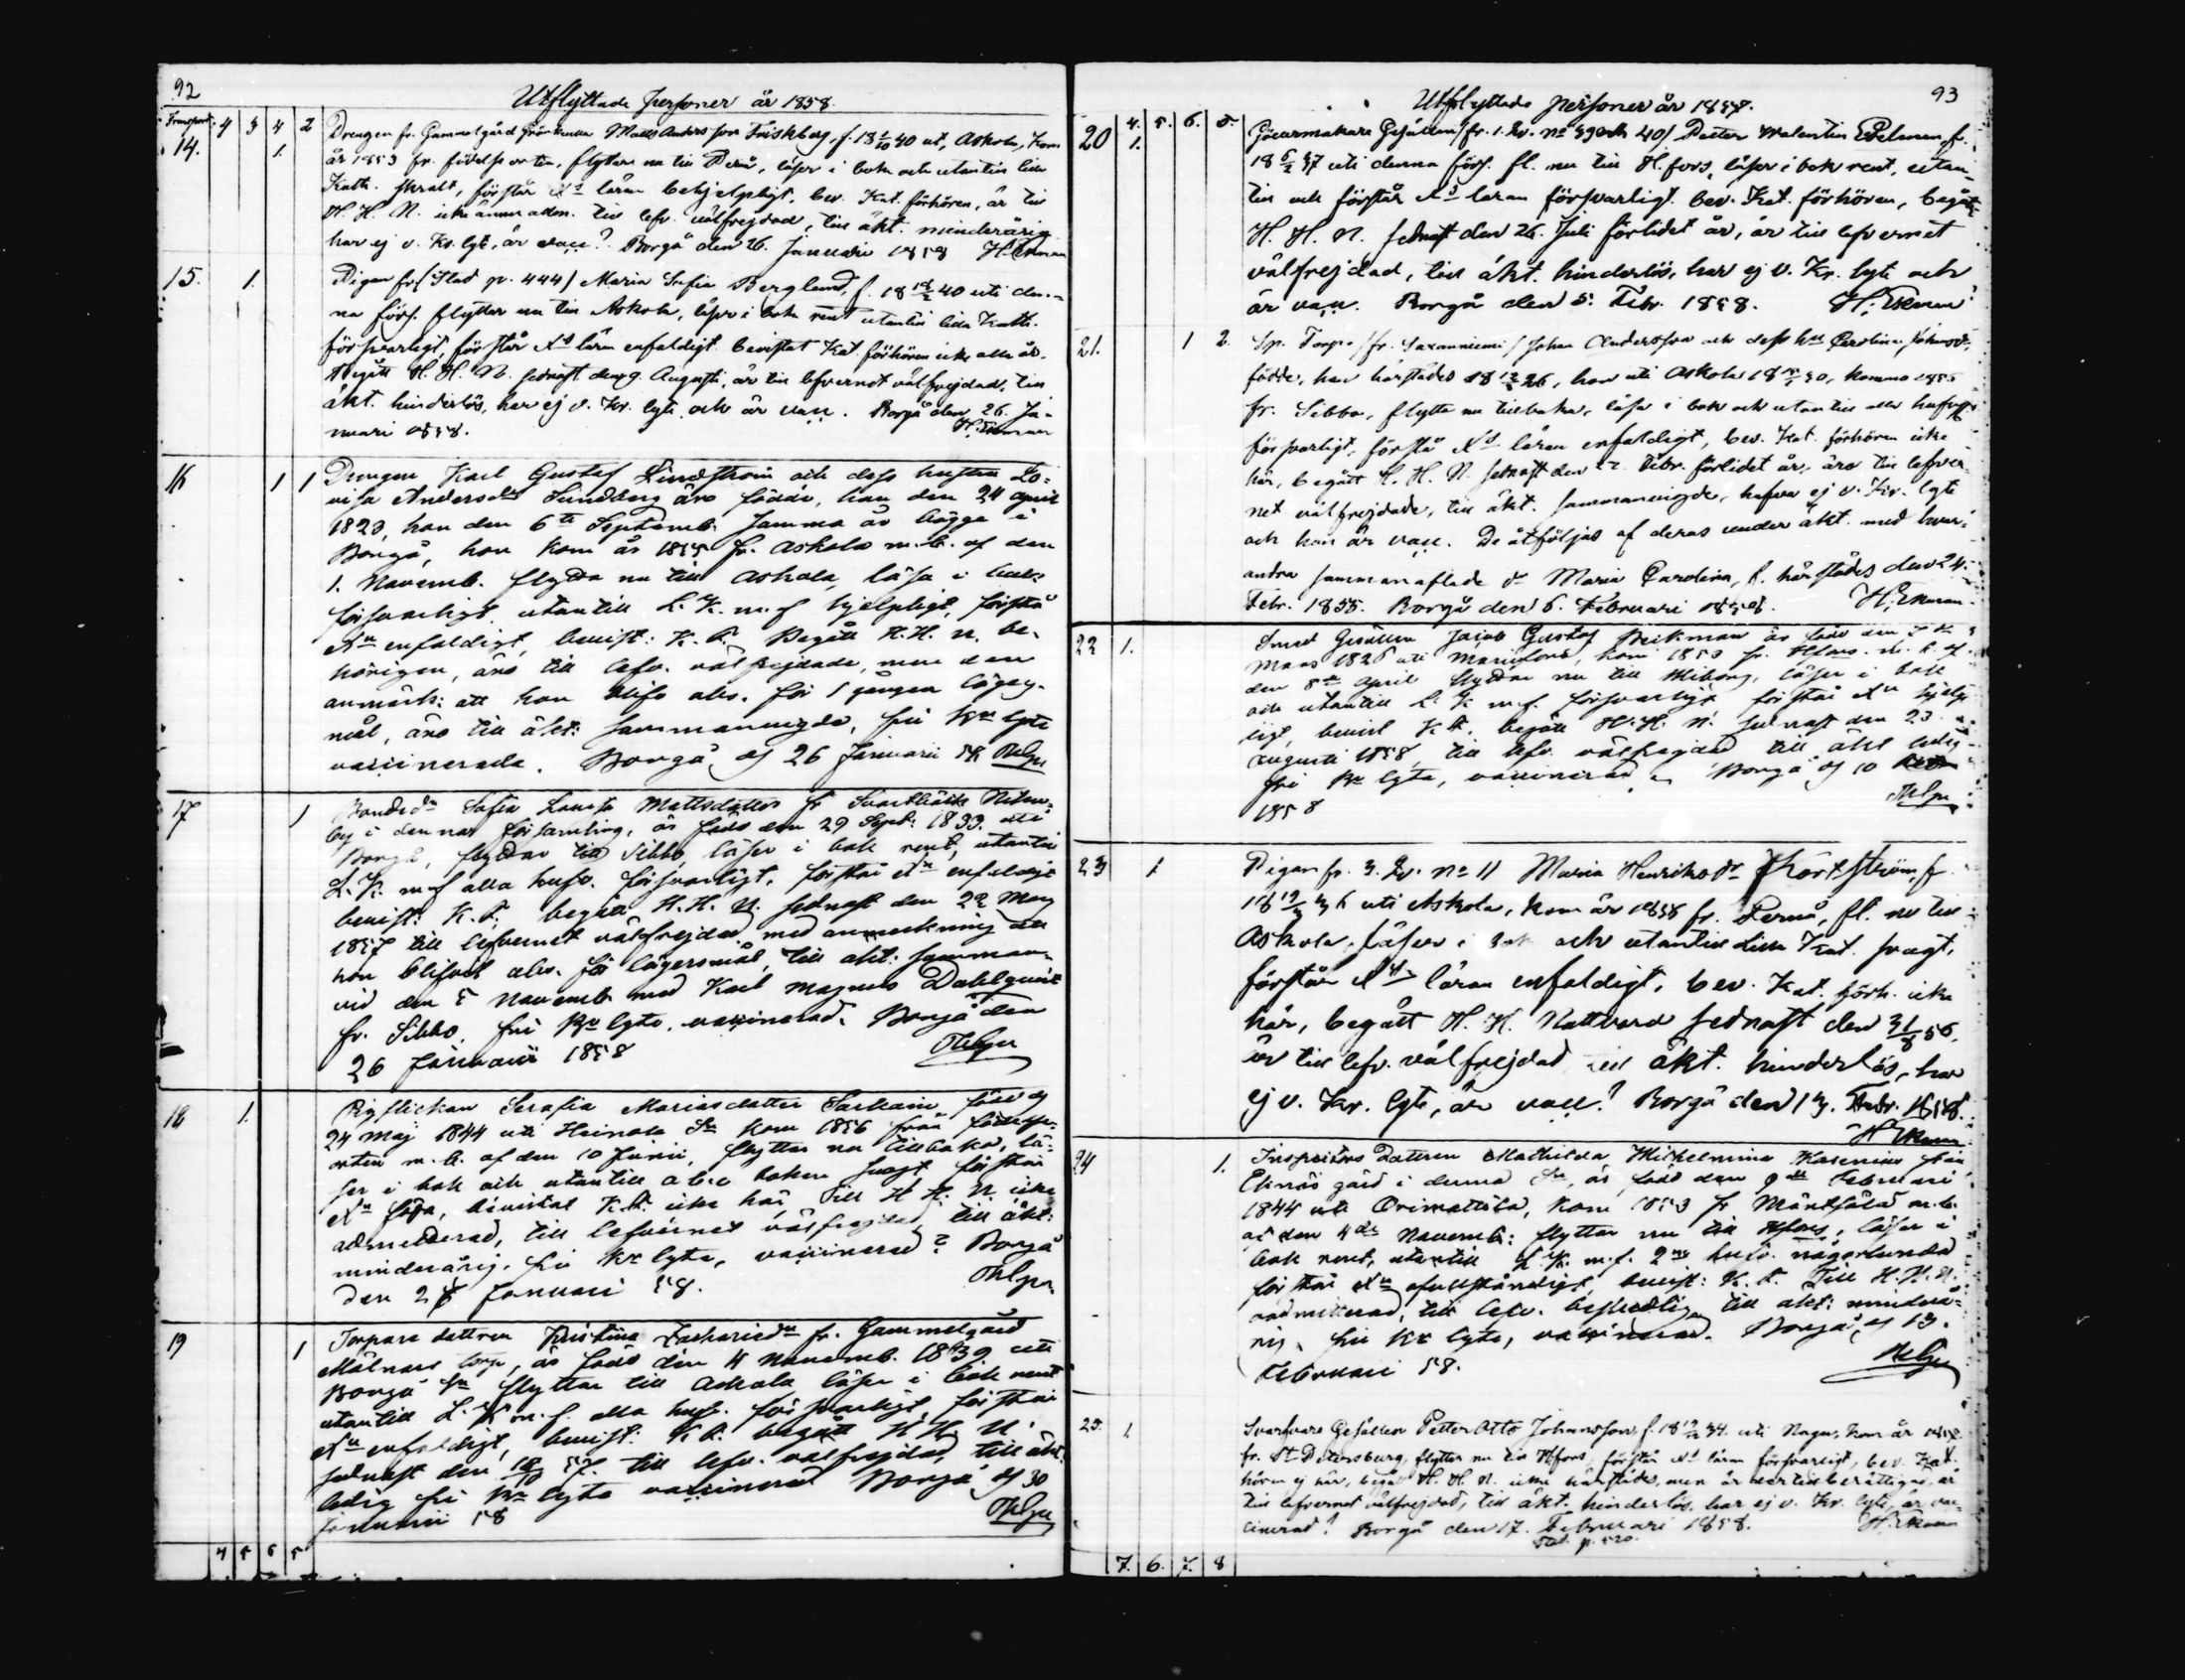 92
Utflyttade Personer år 1858.
Transport 4 3 4 2
14. 1. Drengen fr. Gammelgård Matts Andersson Friskberg, f. 18 40 uti Askola, kom
år 1853 fr. födelseorten, flyttar nu till Pernå, läser i bok och utantill lilla
Kath. svalt, förstår Xs läran behjelpligt, bev. Kat. förhören, är till
H. H. N. icke ännu adm. till lefv. välfrejdad, till äkt. minderårig
har ej v. Kr. lyte, är vacc? Borgå den 26. Januari 1858 H. Ekman
15. 1. Pigan fr. (Stad p. 444) Maria Sofia Berglund, f. 18 40 uti den-
na förs. flyttar nu till Askola, läser i bok rent utantill lilla Kath.
försvarligt, förstår Xs läran enfaldigt bevistat Kat. förhören icke alla år.
Begått H. H. N. sednast den 9. Augusti, är till lefvernet välfrejdad, till
äkt. hinderlös, har ej v. Kr. lyte och är vacc. Borgå den 26. Ja-
nuari 1858. H. Ekman
16 1 1 Drengen Karl Gustaf Lindström och dess hustru Lo-
visa Andersdr Sundberg äro födde, han den 24 April
1823, hon den 6te Septemb. samma år bägge i
Borgå, hon kom år 1855 fr. Askola m. b. af den
1. Novemb. flytta nu till Askola, läsa i bok
försvarligt utantill L. K. m. f. hjelpligt, förstå
Xn enfaldigt, bevist: K. F. Begått H. H. N. be-
hörigen, äro till lefv. välfrejdade, men den
anmärk: att hon blifv. abs. för 1 gången löges-
mål, äro till äkt: sammanvigde, fri Kr lyte
vaccinerade. Borgå d 26 Januarii 58
17 1 Bondedr Sofia Lovisa Mattsdotter fr Svartbäck
by i denna församling, är född den 29 Sept: 1833 uti
Borgå, flyttar till Sibbo, läser i bok rent, utantill
L. K. m. f. alla hufv. försvarligt, förstår Xn enfaldigt
bevist: K. F. begått H. H. N. sednast den 22 Maj
1857 till lefvernet välfrejdad med anmerkning att
hon blifvit abs. för lägersmål, till äkt: samman-
vid den 5 Novemb med Karl Magnus Dahlqvist
fr. Sibbo, fri Kr lyte, vaccinerad. Borgå den
26 Januarii 1858
18 1. Pigflickan Serafia Mariasdotter född d
24 Maj 1844 uti Heinola Sn kom 1856 från födelse-
orten m. b. af den 10 Junii, flyttar nu tillbaka, lä-
ser i bok och utantill abc boken svagt förstår
Xn föga, bevistat K. F. icke här till H. H. N. icke
admitterad, till lefvernet välfrejdad till äkt:
minderårig, fri Kr lyte, vaccinerad? Borgå
den 28 Januari 58.
19 1 Torpare dottren Kristina Zachariedr fr. Gammelgård
Mölnars torp, är född den 4 Novemb. 1839 uti
Borgå Sn flyttar till Askola läser i bok rent
utantill L. K. m. f. alla hufv. försvarligt, förstår
Xn enfaldigt, bevist: K. F. begått H. H. N.
sednast den 18/10 57. till lefv. välfrejdad, till äkt.
ledig fri Kr lyte vaccinerad Borgå d 30
Januarii 58
4 5 6 5
93
Utflyttade personer år 1858.
4. 5. 6. 5.
20 1. Gesällen (fr. 1. Qv. No 39 och 40) Petter Walentin Edelman, f.
18 5/2 37 uti denna förs. fl. nu till H.fors, läser i bok rent, utan-
till och förstår Xs läran försvarligt. bev. Kat. förhören, begått
H. H. N. sednast den 26. Juli förlidet år, är till lefvernet
välfrejdad, till äkt. hinderlös, har ej v. Kr. lyte och
är vacc. Borgå den 5. Febr. 1858. H. Ekman
21. 1 2 Sp. Torp. (fr. Saxanniemi) Johan Andersson och dess hu Carolina Johansdr,
födde, han härstädes 18 26, hon uti Askola 18 30, komna 1855
fr. Sibbo, flytta nu tillbaka, läsa i bok och utantill alla hufvst.
försvarligt, förstå Xs läran enfaldigt, bev. Kat. förhören icke
här, begått H. H. N. sednast den Febr. förlidet år, äro till lefver-
net välfrejdade, till äkt. sammanvigde, hafva ej v. Kr. lyte
och han är vacc. De åtföljas af deras under äkt. med hvar-
andra sammanaflade dr Maria Carolina, f. härstädes den 24.
Febr. 1855. Borgå den 6. Februari 1858. H. Ekman.
22 1. Smed Gesällen Jacob Gustaf Beckman är född den
Mars 1826 uti, kom 1853 fr. Hfors m. b. af
den 8de April flyttar nu till Wiborg, läser i bok
och utantill L. K m. f. försvarligt förstår Xn hjelp-
ligt, bevist K. F. begått H. H. N. sednast den 23
Augusti 1858, till lefv. välfrejdad till äkt ledig
fri Kr lyte, vaccinerad Borgå d 10
1858
23 1 Pigan fr. 3. Qv. No 11 Maria Henriksdr f.
18 36 uti Askola, kom år 1858 fr. Pernå, fl. nu till
Askola, läser i bok och utantill lilla Kat. svagt,
förstår Xs läran enfaldigt, bev. Kat. förh. icke
här, begått H. H. Nattvard sednast den 31/8 56,
är till lefv. välfrejdad till äkt. hinderlös, har
ej v. Kr. lyte, är vacc? Borgå den 13. Febr. 1858.
H Ekman
24 1. Inspectors Dottren Mathilda Wilhelmina Kasenius från
gård i denna Sn, är född den 9de Februari
1844 uti Orimattila, kom 1853 fr Mäntsälä m. b.
af den 4de Novemb: flyttar nu till Hfors, läser i
bok rent, utantill L. K. m. f. 2ne hufv. någorlunda
förstår Xn ofullständigt, bevist: K. F. Till H. H. N.
oadmitterad, till lefv. beskedlig till äkt: minderå-
rig, fri Kr lyte, vaccinerad. Borgå d 13.
Februari 58.
25. 1 Svarfvare Gesällen Petter Otto Johansson, f. 18 34 uti Nagu, kom år
fr. St Petersburg, flyttar nu till Hfors, förstår Xs läran försvarligt, bev. Kat.
hören ej här, begått H. H. N. icke härstädes, men är dertill berättigad, är
till lefvernet välfrejdad, till äkt. hinderlös, har ej v. Kr. lyte, är vac-
cinerad? Borgå den 17. Februari 1858. H. Ekman
7. 6. 7. 8